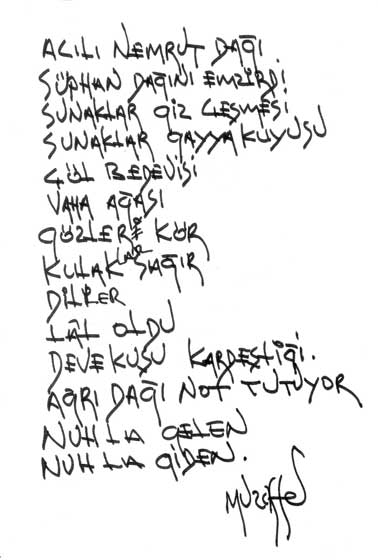 ACILI NEMRUT DAĞI.
SÜPHAN DAĞINI EMZİRDİ
SUNAKLAR GİZ ÇEŞMESİ
SUNAKLAR GAYYA KUYUSU
ÇÖL BEDEVİSİ
VAHA AĞASI
GÖZLER KÖR
KULAKLAR SAĞIR
DİLLER
LÂL OLDU
DEVEKUŞU KARDEŞLİĞİ.
AĞRI DAĞI NOT TUTUYOR
NUH LA GELEN
NUH LA GİDEN.